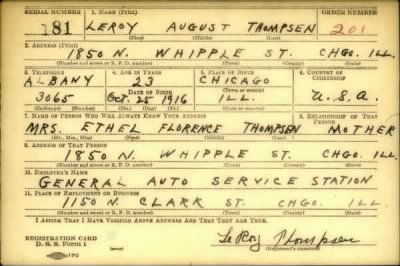 SERIAL NUMBER 1. NAME (Print) ORDER NUMBER
181 LEROY AUGUST THOMPSEN 201
(First) (Middle) (Last)
2. ADDRESS (Print)
1850 N. WHIPPLE ST. CHGO. ILL.
(Number and street or R. F. D. number) (Town) (County) (State)
3. TELEPHONE 4. AGE IN YEARS 5. PLACE OF BIRTH 6. COUNTRY OF CITIZENSHIP
ALBANY 23 CHICAGO
DATE OF BIRTH (Town or county)
3065 Oct. 25 1916 ILL. U.S.A.
(Exchange) (Number) (Mo.) (Day) (Yr.) (State or country)
7. NAME OF PERSON WHO WILL ALWAYS KNOW YOUR ADDRESS 8. RELATIONSHIP OF THAT PERSON
MRS. ETHEL FLORENCE THOMPSEN MOTHER
(Mr., Mrs., Miss) (First) (Middle) (Last)
9. ADDRESS OF THAT PERSON
1850 N. WHIPPLE ST. CHGO. ILL.
(Number and street or R. F. D. number) (Town) (County) (State)
10. EMPLOYER'S NAME
GENERAL AUTO SERVICE STATION
11. PLACE OF EMPLOYMENT OR BUSINESS
1150 N. CLARK ST. CHGO. ILL.
(Number and street or R. F. D. number) (Town) (County) (State)
I AFFIRM THAT I HAVE VERIFIED ABOVE ANSWERS AND THAT THEY ARE TRUE.
REGISTRATION CARD
D. S. S. Form 1 LeRoy Thompsen
(Registrant's signature)